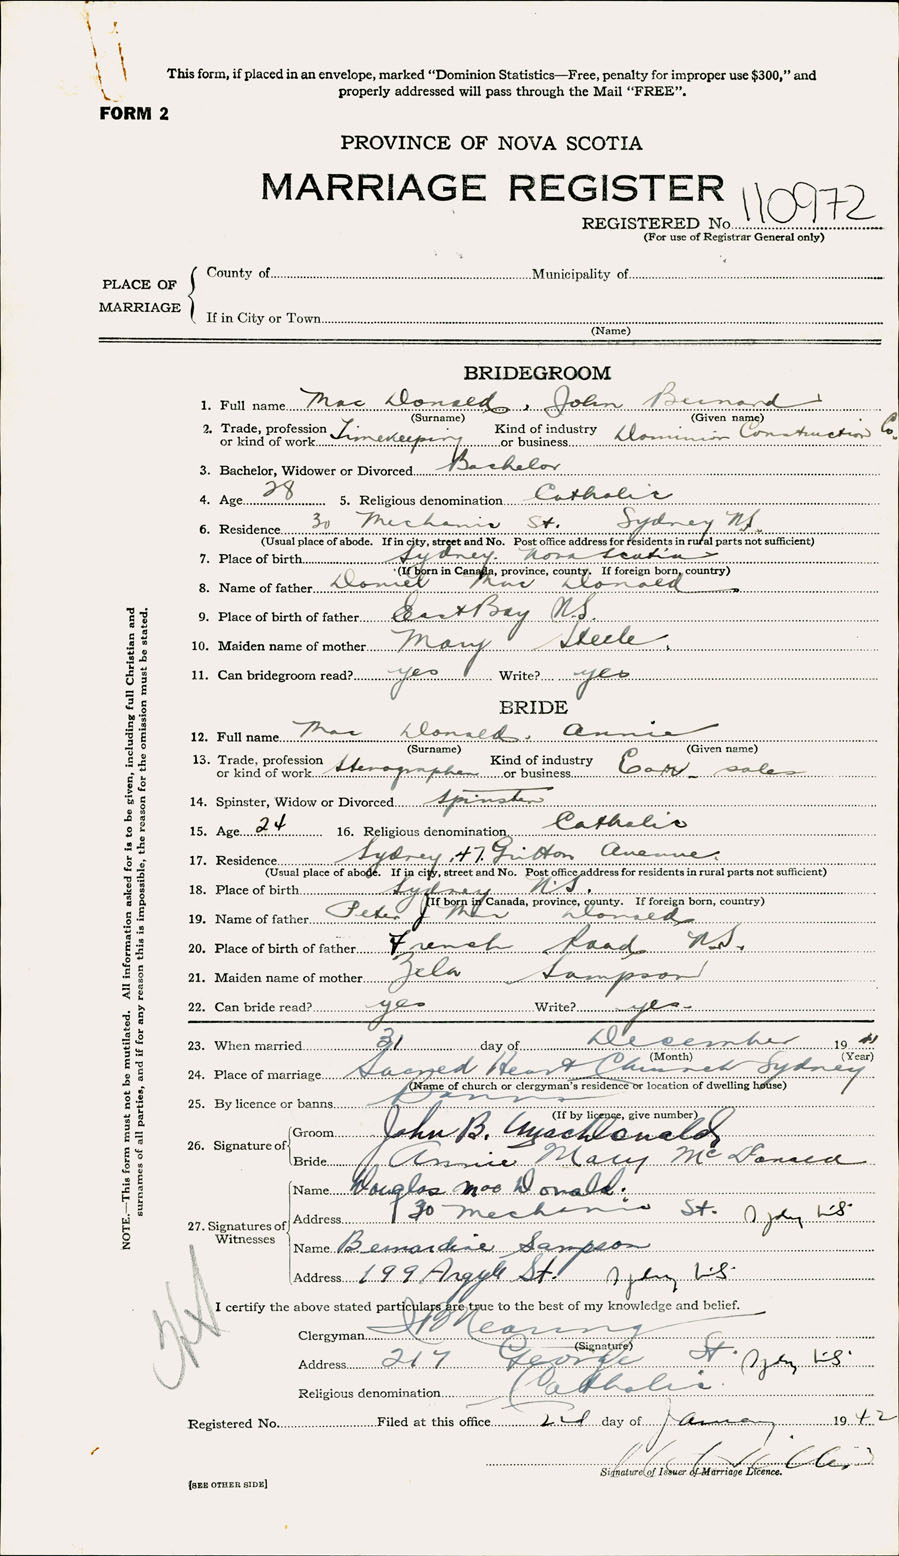 This form, if placed in an envelope, marked “Dominion Statistics—Free, penalty for improper use $300,” and
properly addressed will pass through the Mail “FREE”.
FORM 2
PROVINCE OF NOVA SCOTIA
MARRIAGE REGISTER
REGISTERED No. 110972
(For use of Registrar General only)
PLACE OF MARRIAGE
County of Municipality of
If in City or Town
(Name)
BRIDEGROOM
1. Full name Mac Donald, John Bernard
(Surname) (Given name)
2. Trade, profession or kind of work Timekeeping Kind of industry or business Dominion Construction Co.
3. Bachelor, Widower or Divorced Bachelor
4. Age 28 5. Religious denomination Catholic
6. Residence 30 Mechanic St. Sydney N.S.
(Usual place of abode. If in city, street and No. Post office address for residents in rural parts not sufficient)
7. Place of birth Sydney. Nova Scotia
(If born in Canada, province, county. If foreign born, country)
8. Name of father Daniel Mac Donald
9. Place of birth of father East Bay N.S.
10. Maiden name of mother Mary Steele.
11. Can bridegroom read? yes Write? yes
BRIDE
12. Full name Mac Donald. Annie
(Surname) (Given name)
13. Trade, profession or kind of work Stenographer Kind of industry or business sales
14. Spinster, Widow or Divorced Spinster
15. Age 24 16. Religious denomination Catholic
17. Residence Sydney, 47 Avenue.
(Usual place of abode. If in city, street and No. Post office address for residents in rural parts not sufficient)
18. Place of birth Sydney N.S.
(If born in Canada, province, county. If foreign born, country)
19. Name of father Peter J Mac Donald
20. Place of birth of father French Road N.S.
21. Maiden name of mother Zela Sampson
22. Can bride read? yes Write? yes
23. When married 31 day of December 19 41
(Month) (Year)
24. Place of marriage Sacred Heart Church Sydney
(Name of church or clergyman’s residence or location of dwelling house)
25. By licence or banns Banns
(If by licence, give number)
26. Signature of
Groom John B. MacDonald
Bride Annie Mary McDonald
27. Signatures of Witnesses
Name Douglas Mac Donald.
Address 30 Mechanic St. Sydney N.S.
Name Bernardine Sampson
Address 199 Argyle St. Sydney N.S.
I certify the above stated particulars are true to the best of my knowledge and belief.
Clergyman
(Signature)
Address 217 George St. Sydney N.S.
Religious denomination Catholic
Registered No. Filed at this office 2nd day of January 19 42
Signature of Issuer of Marriage Licence.
[SEE OTHER SIDE]
NOTE.—This form must not be mutilated. All information asked for is to be given, including full Christian and
surnames of all parties, and if for any reason this is impossible, the reason for the omission must be stated.